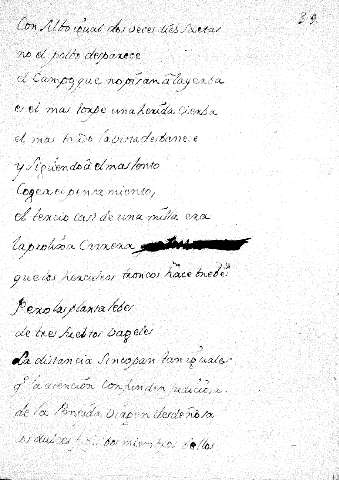 39.
Con silbo igual dos veces diez saetas
no el polvo desparece
el Campo, que no pisan alas yerba
es el mas torpe una herida Cierba
el mas tardo la vista desbanece
y siguiendo a el mas lento
Cogea el pensamiento,
el tercio casi de una milla era
la prolixa Carrera
que los herculeos troncos hace brebes
Pero las plantas lebes
de tres sueltos zagales
La distancia sincopan tan iguales
q. la atención confunden judiciosa
de la Peneida virgen desdeñosa
los dulces